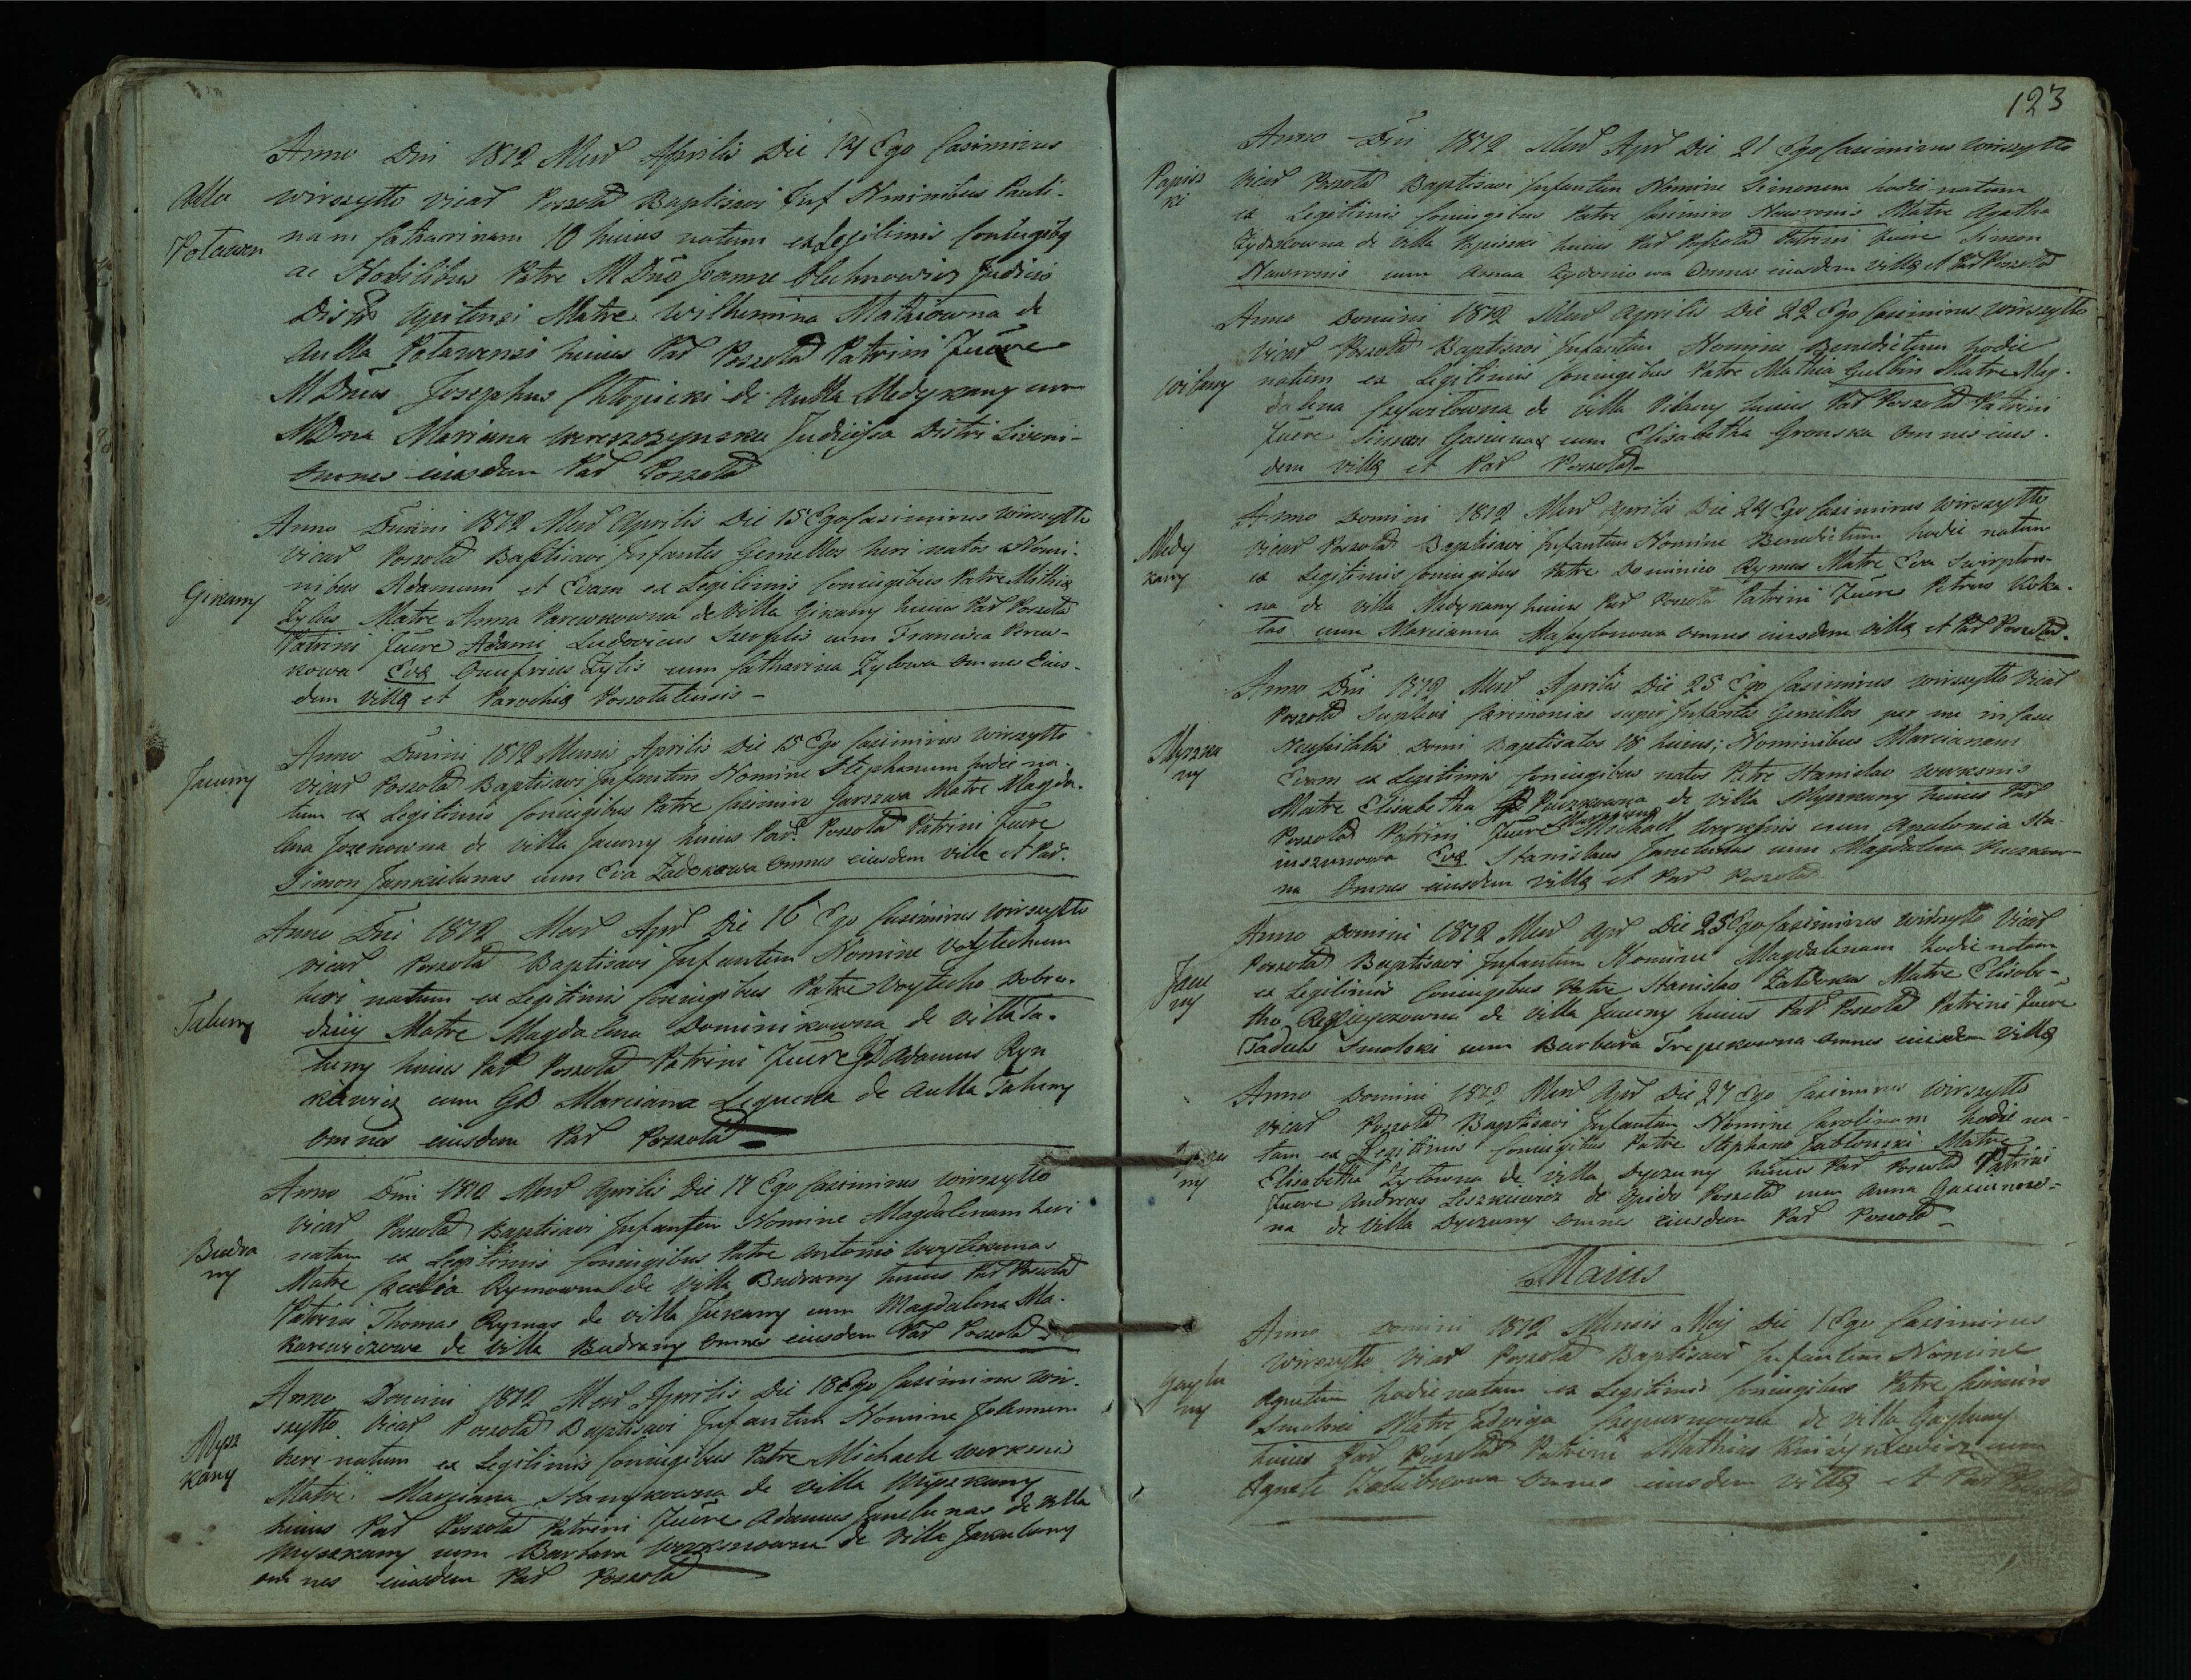 Anno Dni 1812 Mens Aprilis Die 14 Ego Casimirus
Aulla wirszytto vicar Poszolat Baptisavi Inf Nominibus Pauli-
Potawen nam Catharinam 10 huius natam ex Legitimis Coniugibq
ac Nobilibus Patre M Dno Joanne Olechnowicz Judice
Distr Matre Wilhemina Mathiowna de
Aulla Potawensi huius Par Poszolat Patrini Fuere
M Dnus Josephus Chłopicki de Aulla Medykany cum
M Dna Mariana Wereszczynska Judicissa Distri
Omnes eiusdem Par Poszolat
Anno Domini 1812 Mens Aprilis Die 15 Ego Casimirus Wirszytto
Vicar Poszolat Baptisavi Infantes Gemellos heri natos Nomi-
Girkany nibus Adamum et Evam ex Legitimis Coniugibus Patre Mathia
Zylis Matre Anna Parewkowna de Villa Girkany huius Par Poszolat
Patrini Fuere Adami Ludovicus cum Francisca Perew-
kowa Evæ Onufrius Zylis cum Catharina Zylowa Omnes Eius-
dem Villæ et Parochiæ Poszolatensis -
Anno Domini 1812 Mensis Aprilis Die 15 Ego Casimirus Wirszytto
Jauny Vicar Poszolat Baptisavi Infantem Nomine Stephanum hodie na-
tum ex Legitimis Coniugibus Patre Casimiro Garszwa Matre Magda-
lena Jozenowna de villa Jauny huius Par Poszolat Patrini Fuere
Simon Jankielunas cum Eva Zadokowa Omnes eiusdem villæ et Par.
Anno Dni 1812 Mens Apr Die 16 Ego Casimirus Wirszytto
vicar Poszolat Baptisavi Infantem Nomine Voytechum
heri natum ex Legitimis Coniugibus Patre Voytecho Dobro-
Taluny Matre Magdalena Dominikowna de Villa Ta-
luny huius Par Poszolat Patrini Fuere GD Adamus Ryn
kiewicz cum GD Marciana de Aulla Taluny
Omnes eiusdem Par Poszolat
Anno Dni 1812 Mens Aprilis Die 17 Ego Casimirus Wirszytto
Vicar Poszolat Baptisavi Infantem Nomine Magdalenam heri
Budra natam ex Legitimis Coniugibus Patre Antonio Woytkunas
ny Matre Cecilia Rymowna de Villa Budrany huius Par Poszolat
Patrini Thomas Rymas de villa cum Magdalena Ma-
karewiczowa de Villa Budrany Omnes eiusdem Par Poszolat
Anno Domini 1812 Mens Aprilis Die 18 Ego Casimirus Wir-
szytto Vicar Poszolat Baptisavi Infantem Nomine Johannem
Mysz heri natum ex Legitimis Coniugibus Patre Michaele Werksnis
kany Matre Marciana de Villa Myszkany
huius Par Poszolat Patrini Fuere Adamus Janelunas de Villa
Myszkany cum Barbara Werksnowna de Villa Jankuluny
Omnes eiusdem Par Poszolat
123
Anno Dni 1812 Mens Apr Die 21 Ego Casimirus Wirszytto
Papiss Vicar Poszolat Baptisavi Infantem Nomine Simonem hodie natum
ki ex Legitimis Coniugibus Patre Casimiro Nawronis Matre Agatha
de Villa Papisski huius Par Poszolat Patrini Fuere Simon
Nawronis cum Anna Omnes eiusdem Villæ et Par Poszolat
Anno Domini 1812 Mens Aprilis Die 22 Ego Casimirus Wirszytto
Vicar Poszolat Baptisavi Infantem Nomine Benedictum hodie
Vilany natum ex Legitimis Coniugibus Patre Mathia Gulbin Matre Mag-
dalena de Villa Vilany huius Par Poszolat Patrini
Fuere Simon Gasiunas cum Elisabetha Gronska Omnes eius-
dem villæ et Par Poszolat
Anno Domini 1812 Mens Aprilis Die 24 Ego Casimirus Wirszytto
Medy Vicar Poszolat Baptisavi Infantem Nomine Benedictum hodie natum
kany ex Legitimis Coniugibus Patre Dominico Rymas Matre Eva Swirplow-
na de Villa Medykany huius Par Poszolat Patrini Fuere Petrus
cum Marcianna Omnes eiusdem villæ et Par Poszolat.
Anno Dni 1812 Mens Aprilis Die 25 Ego Casimirus Wirszytto Vicar
Poszolat Suplevi Cæremonias super Infantes Gemellos per me in Casu
Myszka Necessitatis Domi Baptisatos 18 huius; Nominibus Marcianam
ny Evam ex Legitimis Coniugibus natos Patre Stanislao Werksnis
Matre Elisabetha Puczkowna de Villa Myszkany huius Par
Poszolat Patrini Fuere Marcianæ Michael Werksnis cum Apolonia Sta-
Evæ Stanislaus Janelunas cum Magdalena Puczkow-
na Omnes eiusdem villæ et Par Poszolat
Anno Domini 1812 Mens Apr Die 25 Ego Casimirus Wirszytto Vicar
Poszolat Baptisavi Infantem Nomine Magdalenam hodie natam
Jau ex Legitimis Coniugibus Patre Stanislao Zaldokas Matre Elisabe-
ny tha de Villa Jauny huius Par Poszolat Patrini Fuere
Tadeus Smolski cum Barbara Trepekowna Omnes eiusdem Villæ
Anno Domini 1812 Mens Apr Die 27 Ego Casimirus Wirszytto
Vicar Poszolat Baptisavi Infantem Nomine Carolinam hodie na-
tam ex Legitimis Coniugibus Patre Stephano Jablonski Matre
ny Elisabetha Zylowna de Villa Dyczuny huius Par Poszolat Patrini
Fuere Andreas Leszkiewicz de Opido Poszolat cum Anna Gasiunow-
na de Villa Dyczuny Omnes eiusdem Par Poszolat
Maius
Anno Domini 1812 Mensis Maj Die 1 Ego Casimirus
Wirszytto Vicar Poszolat Baptisavi Infantem Nomine
Gaylu Agnetam hodie natam ex Legitimis Coniugibus Patre Casimiro
ny Smolski Matre Jadviga Czepurnowna de Villa Gayluny
huius Par Poszolat Patrini Mathias cum
Agnete Omnes eiusdem villæ et Par Poszolat